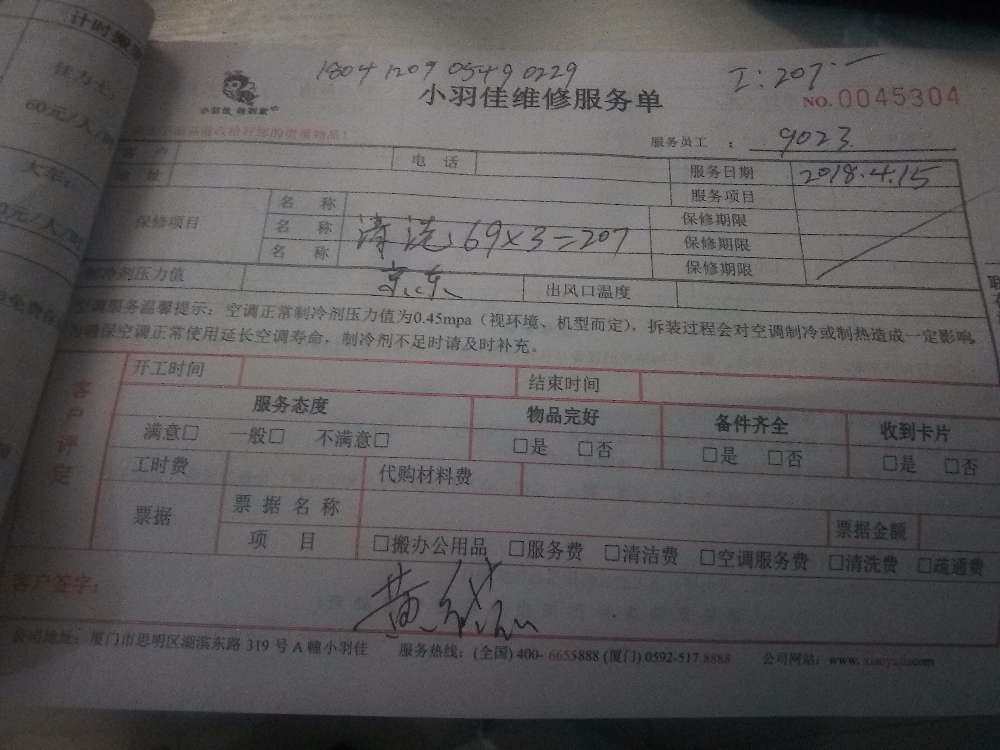 计时搬
60元/人/
大车:
0元/人/
18041209 0549 0229
I:207.—
小羽佳 物到家
小羽佳维修服务单
NO.0045304
服务员工 : 9023
客 户 电 话 服务日期 2018.4.15
地 址 服务项目
保修项目 名 称 保修期限
名 称 清洗 69×3=207 保修期限
名 称 保修期限
制冷剂压力值 京东 出风口温度
空调服务温馨提示:空调正常制冷剂压力值为0.45mpa(视环境、机型而定),拆装过程会对空调制冷或制热造成一定影响,
确保空调正常使用延长空调寿命,制冷剂不足时请及时补充。
客户评定
开工时间 结束时间
服务态度 物品完好 备件齐全 收到卡片
满意□ 一般□ 不满意□ □是 □否 □是 □否 □是 □否
工时费 代购材料费
票据 票据名称 票据金额
项 目 □搬办公用品 □服务费 □清洁费 □空调服务费 □清洗费 □疏通费
客户签字: 黄
公司地址:厦门市思明区湖滨东路 319 号 A 幢小羽佳 服务热线:(全国) 400- 6655888 (厦门) 0592-517 8888 公司网站:www.xiaoyujia.com